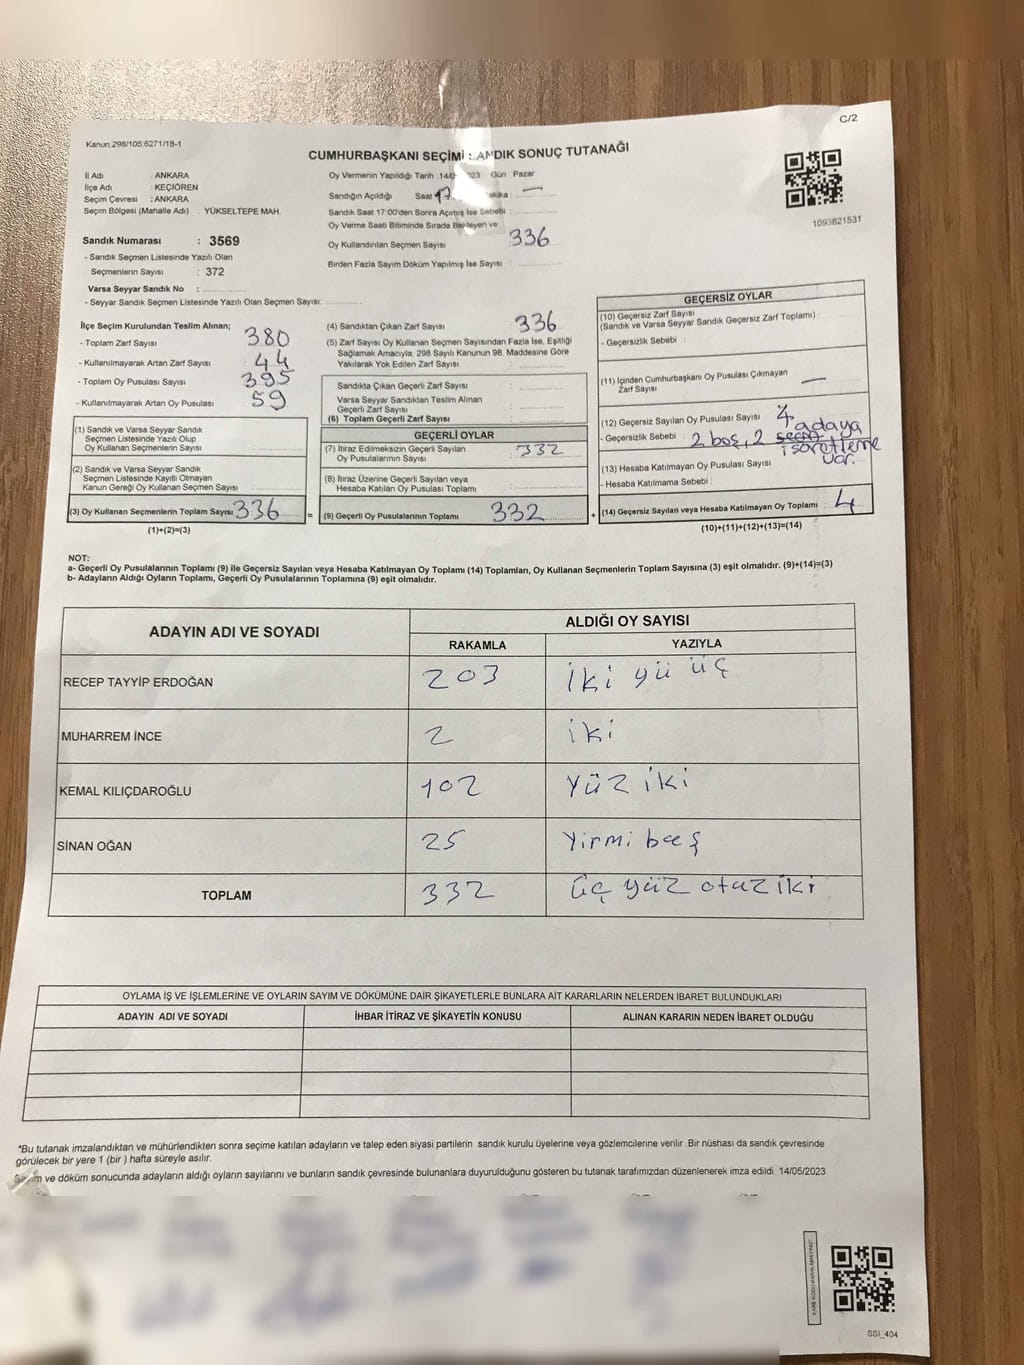 C/2
Kanun.298/105;6271/18-1
CUMHURBAŞKANI SEÇİMİ SANDIK SONUÇ TUTANAĞI
İl Adı : ANKARA
İlçe Adı : KEÇİÖREN
Seçim Çevresi : ANKARA
Seçim Bölgesi (Mahalle Adı) : YÜKSELTEPE MAH.
Sandık Numarası : 3569
- Sandık Seçmen Listesinde Yazılı Olan
Seçmenlerin Sayısı : 372
Varsa Seyyar Sandık No :
- Seyyar Sandık Seçmen Listesinde Yazılı Olan Seçmen Sayısı:
Oy Vermenin Yapıldığı Tarih : 14/0 23 Gün Pazar
Sandığın Açıldığı Saat 17 akika : —
Sandık Saat 17:00'den Sonra Açımış İse Sebebi :
Oy Verme Saati Bitiminde Sırada Bekleyen ve
Oy Kullandırılan Seçmen Sayısı : 336
Birden Fazla Sayım Döküm Yapılmış İse Sayısı :
1093821531
İlçe Seçim Kurulundan Teslim Alınan;
- Toplam Zarf Sayısı : 380
- Kullanılmayarak Artan Zarf Sayısı : 44
- Toplam Oy Pusulası Sayısı : 395
- Kullanılmayarak Artan Oy Pusulası : 59
(1) Sandık ve Varsa Seyyar Sandık
Seçmen Listesinde Yazılı Olup
Oy Kullanan Seçmenlerin Sayısı :
(2) Sandık ve Varsa Seyyar Sandık
Seçmen Listesinde Kayıtlı Olmayan
Kanun Gereği Oy Kullanan Seçmen Sayısı :
(3) Oy Kullanan Seçmenlerin Toplam Sayısı : 336 =
(1)+(2)=(3)
(4) Sandıktan Çıkan Zarf Sayısı : 336
(5) Zarf Sayısı Oy Kullanan Seçmen Sayısından Fazla İse, Eşitliği
Sağlamak Amacıyla, 298 Sayılı Kanunun 98. Maddesine Göre
Yakılarak Yok Edilen Zarf Sayısı :
Sandıkta Çıkan Geçerli Zarf Sayısı :
Varsa Seyyar Sandıktan Teslim Alınan
Geçerli Zarf Sayısı :
(6) Toplam Geçerli Zarf Sayısı :
GEÇERLİ OYLAR
(7) İtiraz Edilmeksizin Geçerli Sayılan
Oy Pusulalarının Sayısı : 332
(8) İtiraz Üzerine Geçerli Sayılan veya
Hesaba Katılan Oy Pusulası Toplamı :
(9) Geçerli Oy Pusulalarının Toplamı 332 +
GEÇERSİZ OYLAR
(10) Geçersiz Zarf Sayısı
(Sandık ve Varsa Seyyar Sandık Geçersiz Zarf Toplamı) :
- Geçersizlik Sebebi :
(11) İçinden Cumhurbaşkanı Oy Pusulası Çıkmayan
Zarf Sayısı : —
(12) Geçersiz Sayılan Oy Pusulası Sayısı : 4
- Geçersizlik Sebebi : 2 boş, 2 adaya
işaretleme
var.
(13) Hesaba Katılmayan Oy Pusulası Sayısı :
- Hesaba Katılmama Sebebi :
(14) Geçersiz Sayılan veya Hesaba Katılmayan Oy Toplamı : 4
(10)+(11)+(12)+(13)=(14)
NOT:
a- Geçerli Oy Pusulalarının Toplamı (9) ile Geçersiz Sayılan veya Hesaba Katılmayan Oy Toplamı (14) Toplamları, Oy Kullanan Seçmenlerin Toplam Sayısına (3) eşit olmalıdır. (9)+(14)=(3)
b- Adayların Aldığı Oyların Toplamı, Geçerli Oy Pusulalarının Toplamına (9) eşit olmalıdır.
ADAYIN ADI VE SOYADI ALDIĞI OY SAYISI
RAKAMLA YAZIYLA
RECEP TAYYİP ERDOĞAN 203 iki yü üç
MUHARREM İNCE 2 iki
KEMAL KILIÇDAROĞLU 102 Yüz iki
SİNAN OĞAN 25 Yirmi beş
TOPLAM 332 üç yüz otuz iki
OYLAMA İŞ VE İŞLEMLERİNE VE OYLARIN SAYIM VE DÖKÜMÜNE DAİR ŞİKAYETLERLE BUNLARA AİT KARARLARIN NELERDEN İBARET BULUNDUKLARI
ADAYIN ADI VE SOYADI İHBAR İTİRAZ VE ŞİKAYETİN KONUSU ALINAN KARARIN NEDEN İBARET OLDUĞU
*Bu tutanak imzalandıktan ve mühürlendikten sonra seçime katılan adayların ve talep eden siyasi partilerin sandık kurulu üyelerine veya gözlemcilerine verilir .Bir nüshası da sandık çevresinde
görülecek bir yere 1 (bir ) hafta süreyle asılır.
Sayım ve döküm sonucunda adayların aldığı oyların sayılarını ve bunların sandık çevresinde bulunanlara duyurulduğunu gösteren bu tutanak tarafımızdan düzenlenerek imza edildi. 14/05/2023
SSI_404